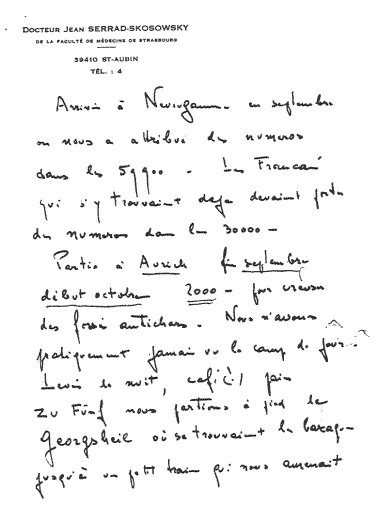 DOCTEUR JEAN SERRAD-SKOSOWSKY
DE LA FACULTÉ DE MÉDECINE DE STRASBOURG
39410 ST-AUBIN
TÉL. : 4
Arrivés à Neuengamme en septembre
on nous a attribué des numeros
dans les 59900 - Les Français
qui s'y trouvaient deja devaient porter
des numeros dans les 30000 -
Partis à Aurich fin septembre
début octobre 2000 - pour creuser
des fossés antichars. Nous n'avons
pratiquement jamais vu le camp de jour.
Levés la nuit, café(?) pain
zu Fünf nous partions à pied
Georgsheil où se trouvaient la
jusqu'à un petit train qui nous amenait